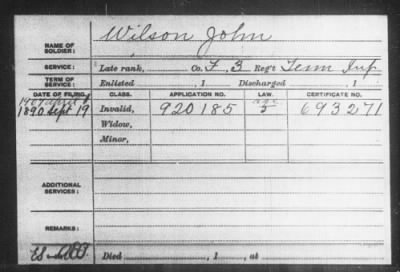 NAME OF SOLDIER: Wilson John
SERVICE: Late rank, Co. F, 3 Reg't Tenn Inf
TERM OF SERVICE: Enlisted , 1 Discharged , 1
DATE OF FILING. CLASS. APPLICATION NO. LAW. CERTIFICATE NO.
1907 April 6 age
1890 Sept 19 Invalid, 920185 693271
Widow,
Minor,
ADDITIONAL SERVICES:
REMARKS:
Died , 1 , at